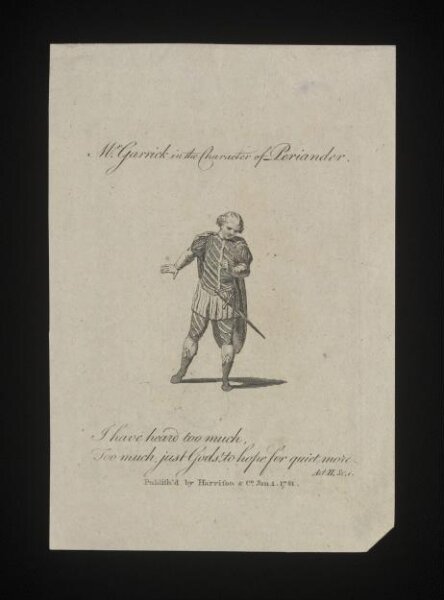 Mr. Garrick in the Character of Periander.
I have heard too much,
Too much, just Gods! to hope for quiet more.
Act II, Sc. 1.
Publish'd by Harrison & Co. Jan. 1. 1781.